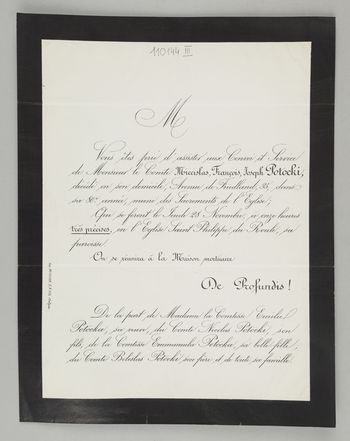 110144 III
M
Vous êtes prié d'assister aux Convoi et Service
de Monsieur le Comte Miecislas, François, Joseph Potocki,
décédé en son domicile, Avenue de Friedland, 35, dans
sa 80e année, muni des Sacrements de l'Eglise;
Qui se feront le Jeudi 28 Novembre, à onze heures
très précises, en l'Eglise Saint Philippe du Roule, sa
paroisse.
On se réunira à la Maison mortuaire
De Profundis!
De la part de Madame la Comtesse Emilie
Potocka, sa mère, du Comte Nicolas Potocki, son
fils, de la Comtesse Emmanuela Potocka, sa belle fille,
du Comte Boleslas Potocki son frère, et de toute sa famille.